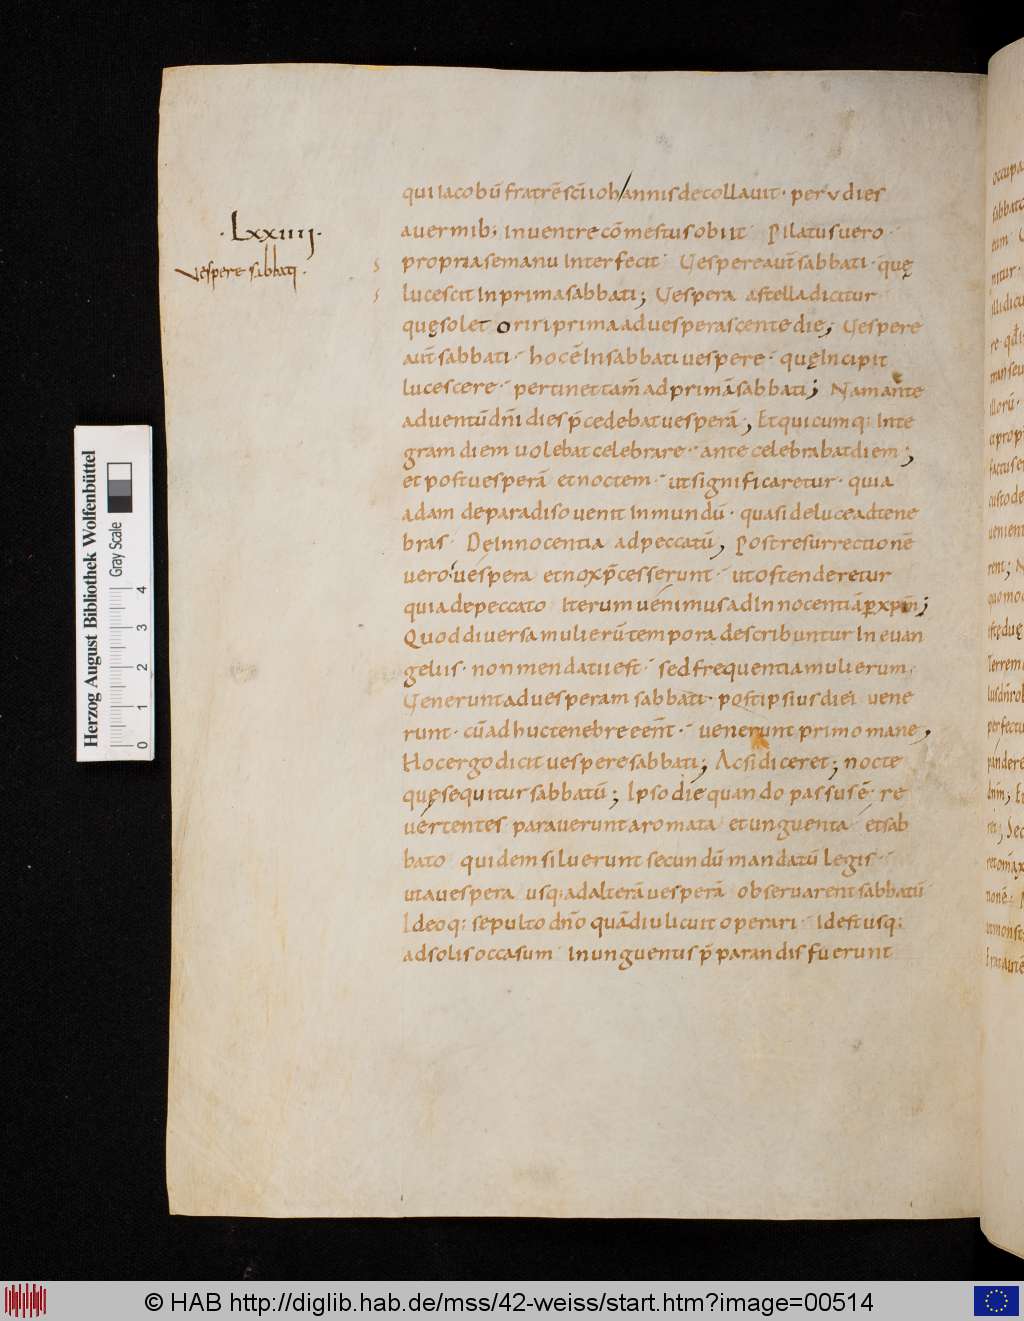 ·Lxxiiii·
vespere sabbati·
qui iacobū fratrē sc̄i iohannis decollavit· per v dies
a vermib; in ventre cōmestus obiit· Pilatus vero·
propria se manu interfecit· Vespere aut̄ sabbati· quę
lucescit in prima sabbati; Vespera a stella dicitur
quę solet oriri prima advesperascente die; Vespere
aut̄ sabbati· hoc ē in sabbati vespere· quę incipit
lucescere· pertinet tam̄ ad primā sabbati; Nam ante
adventū dn̄i dies p̄cedebat vesperā; Et quicumq: inte
gram diem volebat celebrare· ante celebrabat diem;
et post vesperā et noctem· ut significaretur· quia
adam de paradiso venit in mundū· quasi de luce ad tene
bras· De innocentia ad peccatū; Post resurrectionē
vero vespera et nox p̄cesserunt· ut ostenderetur
quia de peccato iterum venimus ad innocentiā ꝑ xp̄m;
Quod diversa mulierū tempora describuntur in evan
geliis· non mendatii est· sed frequentia mulierum·
Venerunt ad vesperam sabbati· post ipsius diei vene
runt· cū adhuc tenebre eēnt̄· venerunt primo mane;
Hoc ergo dicit vespere sabbati; Ac si diceret; nocte
quę sequitur sabbatū; Ipso die quando passus ē· re
vertentes paraverunt aromata et unguenta et sab
bato quidem siluerunt secundū mandatū legis·
ut a vespera usq: ad alterā vesperā observarent sabbatū·
Ideoq: sepulto dn̄o quādiu licuit operari· Id est usq:
ad solis occasum in unguentis p̄parandis fuerunt
Herzog August Bibliothek Wolfenbüttel
Gray Scale
0 1 2 3 4
© HAB http://diglib.hab.de/mss/42-weiss/start.htm?image=00514